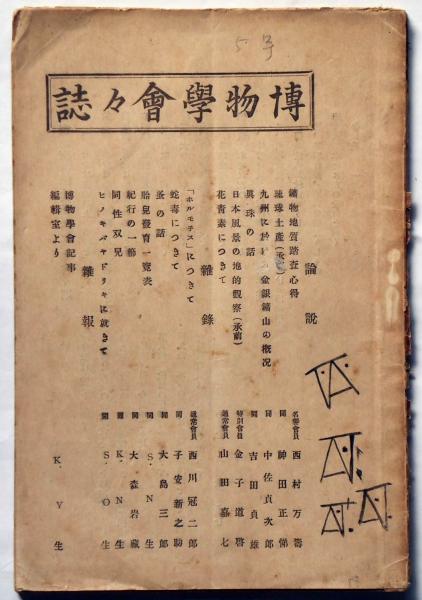 5号
博物學會々誌
論説
鑛物地質踏査心得 名譽會員 西村万壽
琉球土産(承前) 同 神田正悌
九州に於ける金銀鑛山の概况 同 中佐貞次郎
眞珠の話 同 吉田貞雄
日本風景の地的觀察(承前) 特別會員 金子道啓
花靑素につきて 通常會員 山田嘉七
雜錄
「ホルモチス」につきて 通常會員 西川冠二郎
蛇毒につきて 同 子安新之助
蚤の話 同 大島三郎
胎兒發育一覽表 同 S.N生
紀行の一節 同 大森岩藏
同性双兒 同 K.N生
ヒノキバヤドリキに就きて 同 S.O生
雜報
博物學會記事
編輯室より K.Y生